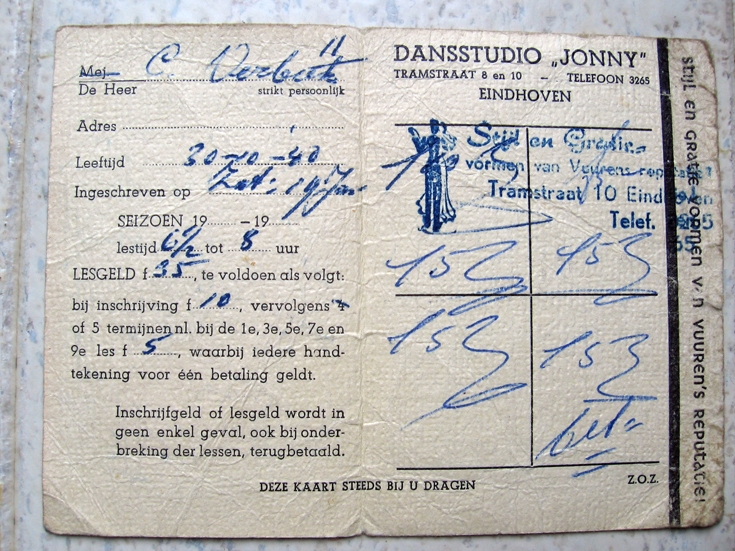 11
Mej. C. Verbeek
De Heer strikt persoonlijk
Adres
Leeftijd 30-10-40
Ingeschreven op Zat.
SEIZOEN 19 – 19
lestijd 6½ tot 8 uur
LESGELD f 35, te voldoen als volgt:
bij inschrijving f 10, vervolgens 4
of 5 termijnen nl. bij de 1e, 3e, 5e, 7e en
9e les f 5, waarbij iedere hand-
tekening voor één betaling geldt.
Inschrijfgeld of lesgeld wordt in
geen enkel geval, ook bij onder-
breking der lessen, terugbetaald.
DANSSTUDIO „JONNY"
TRAMSTRAAT 8 en 10 – TELEFOON 3265
EINDHOVEN
Stijl en Gratie
vormen van Vuurens reputatie
Tramstraat 10 Eindhoven
Telef.
bet.
DEZE KAART STEEDS BIJ U DRAGEN
Z.O.Z.
stijl en gratie vormen v n vuuren's reputatie!